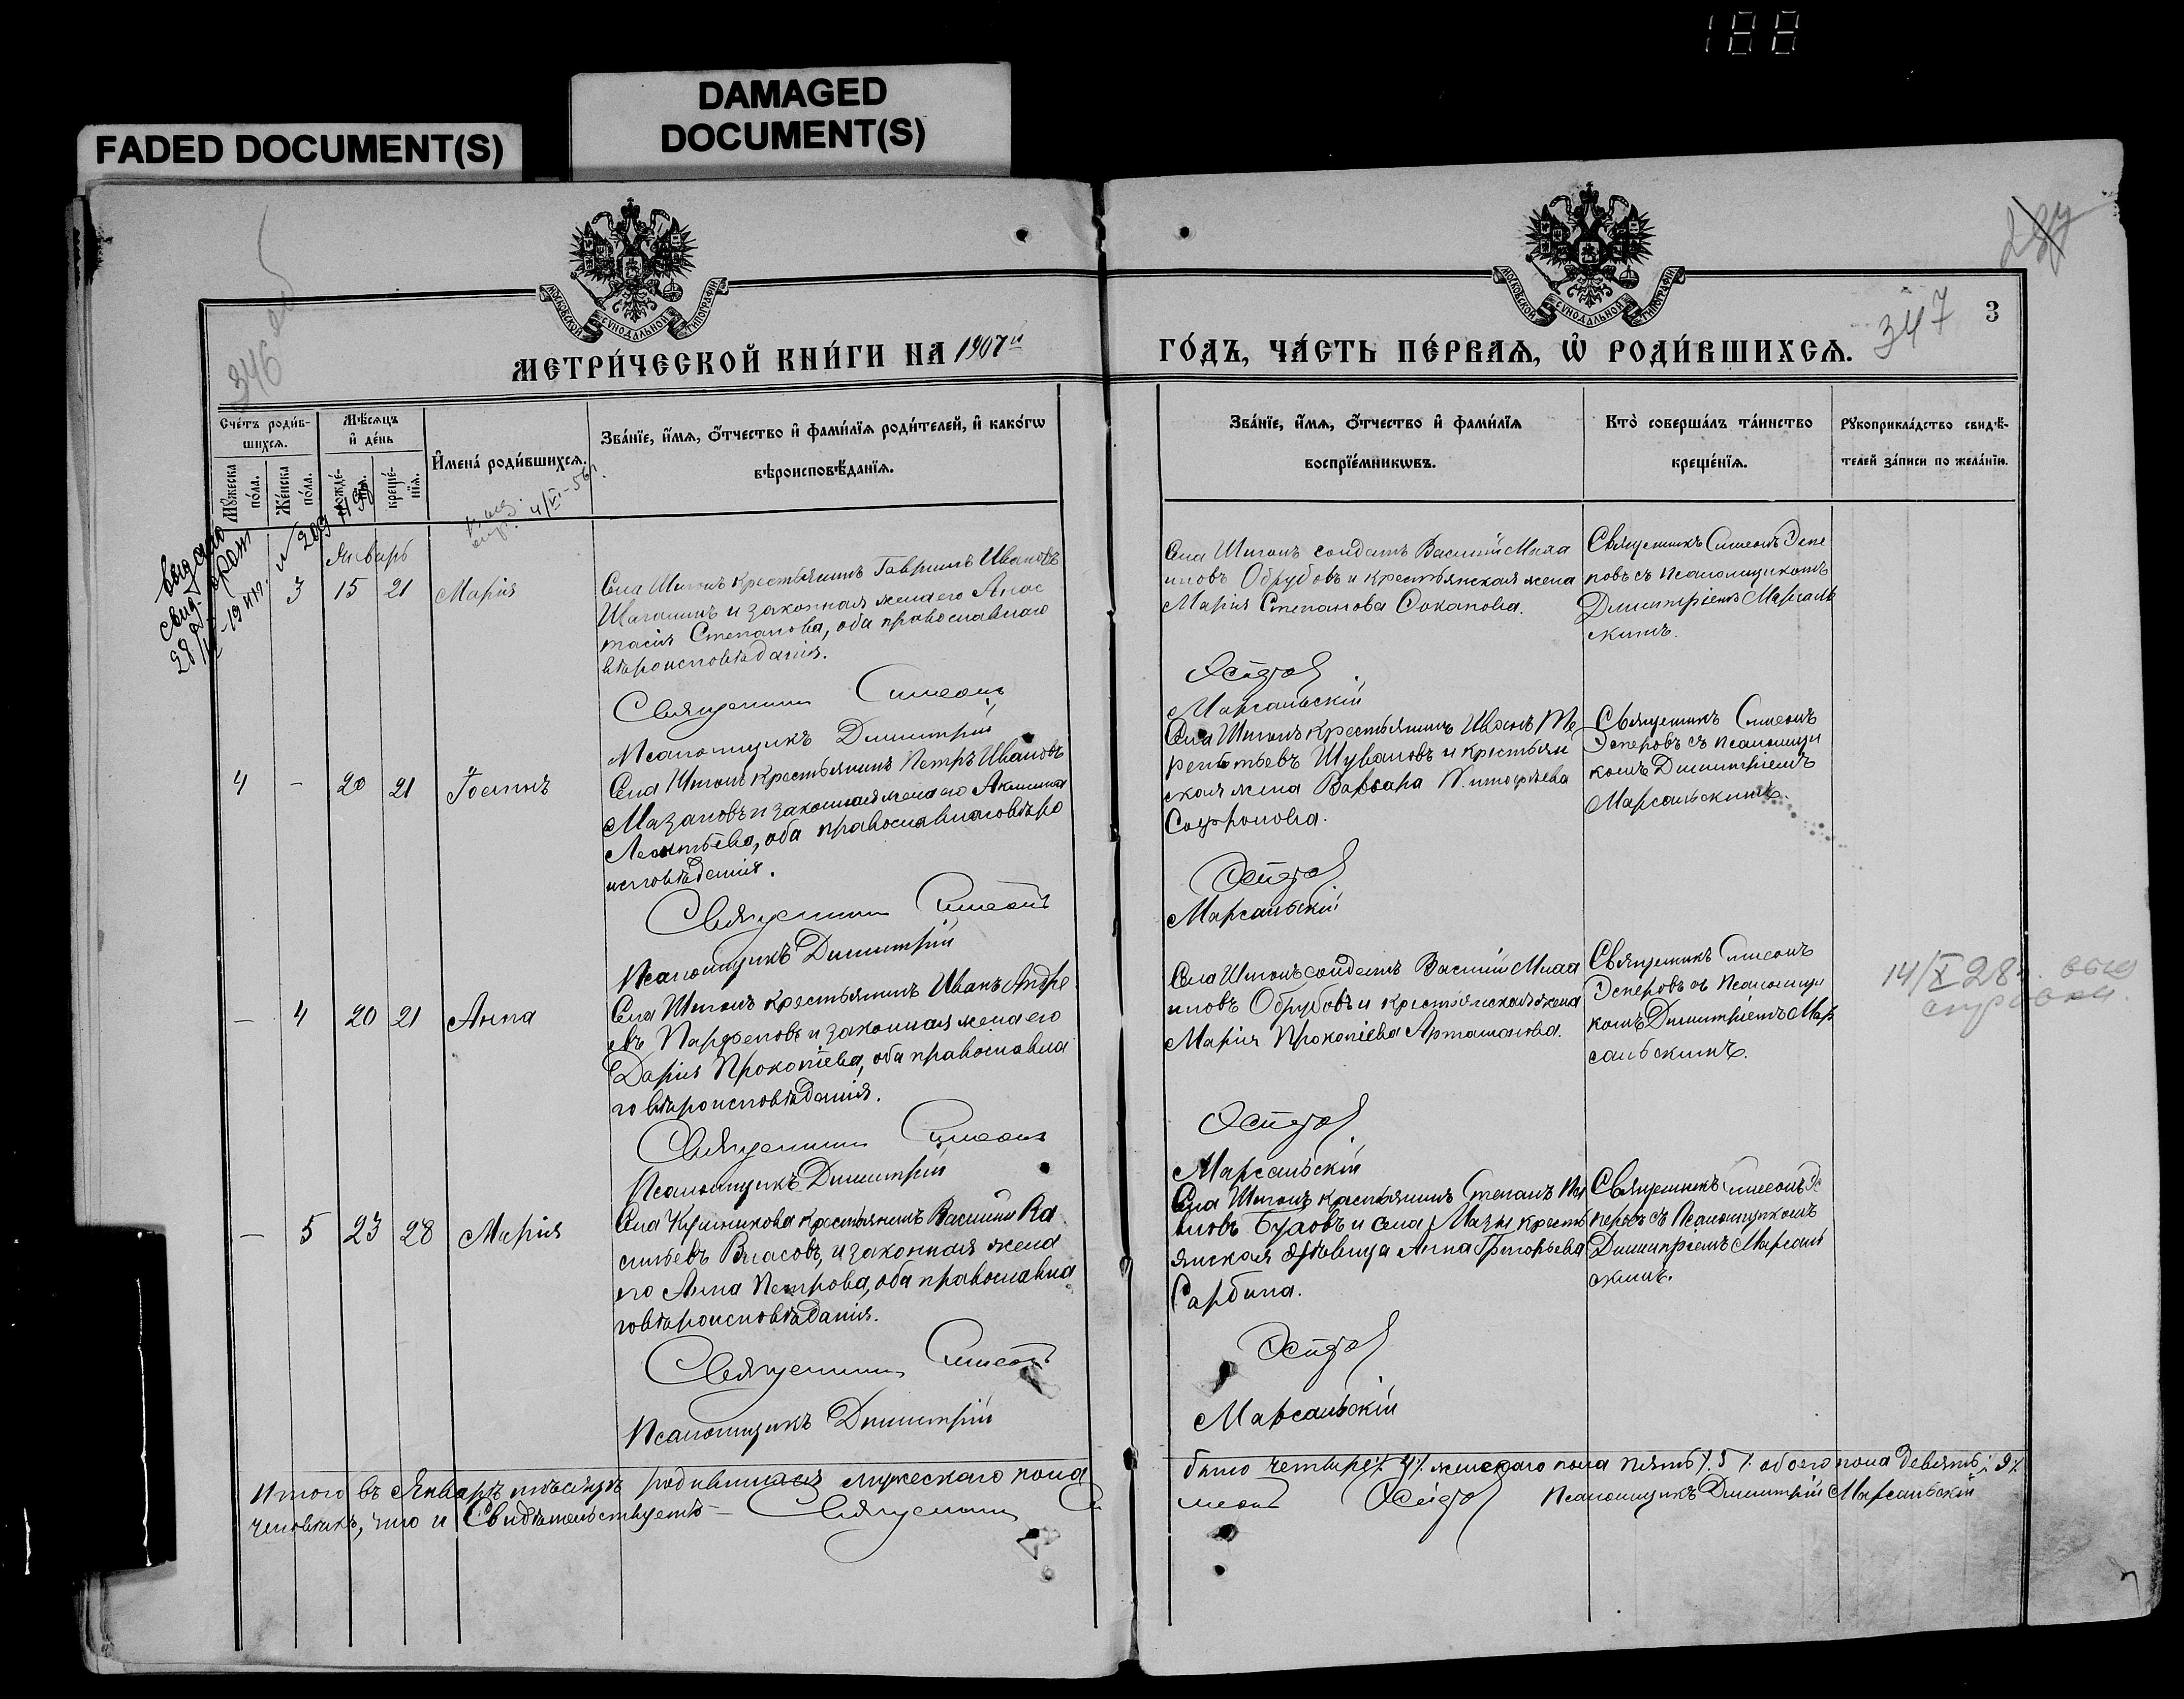 188
DAMAGED
DOCUMENT(S)
FADED DOCUMENT(S)
МОСКОВСКОЙ СѴНОДАЛЬНОЙ ТИПОГРАФІИ
МОСКОВСКОЙ СѴНОДАЛЬНОЙ ТИПОГРАФІИ
346
347
3
МЕТРИ́ЧЕСКОЙ КНИ́ГИ НА 1907й
ГО́ДЪ, ЧА́СТЬ ПЕ́РВАѦ, Ѽ РОДИ́ВШИХСѦ.
Сче́тъ роди́в-
шихсѧ.
Мꙋ́жеска по́ла.
Же́нска по́ла.
Мѣ́сѧцъ
и҆ де́нь
рожде́-
нїѧ.
креще́-
нїѧ.
И҆мена́ роди́вшихсѧ.
Зва́нїе, и҆́мѧ, ѻ҆́тчество и҆ фами́лїѧ роди́телей, и҆ како́гѡ
вѣроисповѣ́данїѧ.
Зва́нїе, и҆́мѧ, ѻ҆́тчество и҆ фами́лїѧ
воспрїе́мникѡвъ.
Кто̀ соверша́лъ та́инство
креще́нїѧ.
Рꙋкоприкла́дство свидѣ́-
телей за́писи по жела́нїю.
выдано
свид.
Январь
3 15 21 Марія
Села Шигонъ крестьянинъ Гавріилъ Ивановъ
Шигонинъ и законная жена его Анас
тасія Степанова, оба православнаго
вѣроисповѣданія.
Священникъ Симеонъ
Псаломщикъ Димитрій
Села Шигонъ солдатъ Василій Миха
иловъ Обрубовъ и крестьянская жена
Марія Степанова Соколова.
Эсперовъ
Марсальскій
Священникъ Симеонъ Эспе
ровъ съ псаломщикомъ
Димитріемъ Марсаль
скимъ.
4 - 20 21 Іоаннъ
Села Шигонъ крестьянинъ Петръ Ивановъ
Мазановъ и законная жена его Акилина
Леонтьева, оба православнаго вѣро
исповѣданія.
Священникъ Симеонъ
Псаломщикъ Димитрій
Села Шигонъ крестьянинъ Иванъ Те
рентьевъ Шуваловъ и крестьян
ская жена Варвара Тимофѣева
Софронова.
Эсперовъ
Марсальскій
Священникъ Симеонъ
Эсперовъ съ псаломщи
комъ Димитріемъ
Марсальскимъ.
- 4 20 21 Анна
Села Шигонъ крестьянинъ Иванъ Андре
евъ Парфеновъ и законная жена его
Дарія Прокопіева, оба православна
го вѣроисповѣданія.
Священникъ Симеонъ
Псаломщикъ Димитрій
Села Шигонъ солдатъ Василій Миха
иловъ Обрубовъ и крестьянская жена
Марія Прокопіева Артамонова.
Эсперовъ
Марсальскій
Священникъ Симеонъ
Эсперовъ съ псаломщи
комъ Димитріемъ Мар
сальскимъ.
14/X 28 выд
справка
- 5 23 28 Марія
Села Кушникова крестьянинъ Василій Ва
сильевъ Власовъ, и законная жена
его Анна Петрова, оба православна
го вѣроисповѣданія.
Священникъ Симеонъ
Псаломщикъ Димитрій
Села Шигонъ крестьянинъ Степанъ
и села Мазы кресть
янская дѣвица Анна Григорьева
Сарбина.
Эсперовъ
Марсальскій
Священникъ Симеонъ Эс
перовъ съ Псаломщикомъ
Димитріемъ Марсаль
скимъ.
Итого въ Январѣ мѣсяцѣ родившихся мужескаго пола
было четыре /4/ женскаго пола пять /5/ обоего пола девять /9/
человѣкъ, что и свидѣтельствуетъ – Священникъ Си
меонъ Эсперовъ Псаломщикъ Димитрій Марсальскій